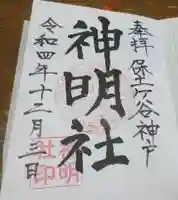 奉拝 保土ケ谷神戸
神明社
令和四年十二月三日
神明社印